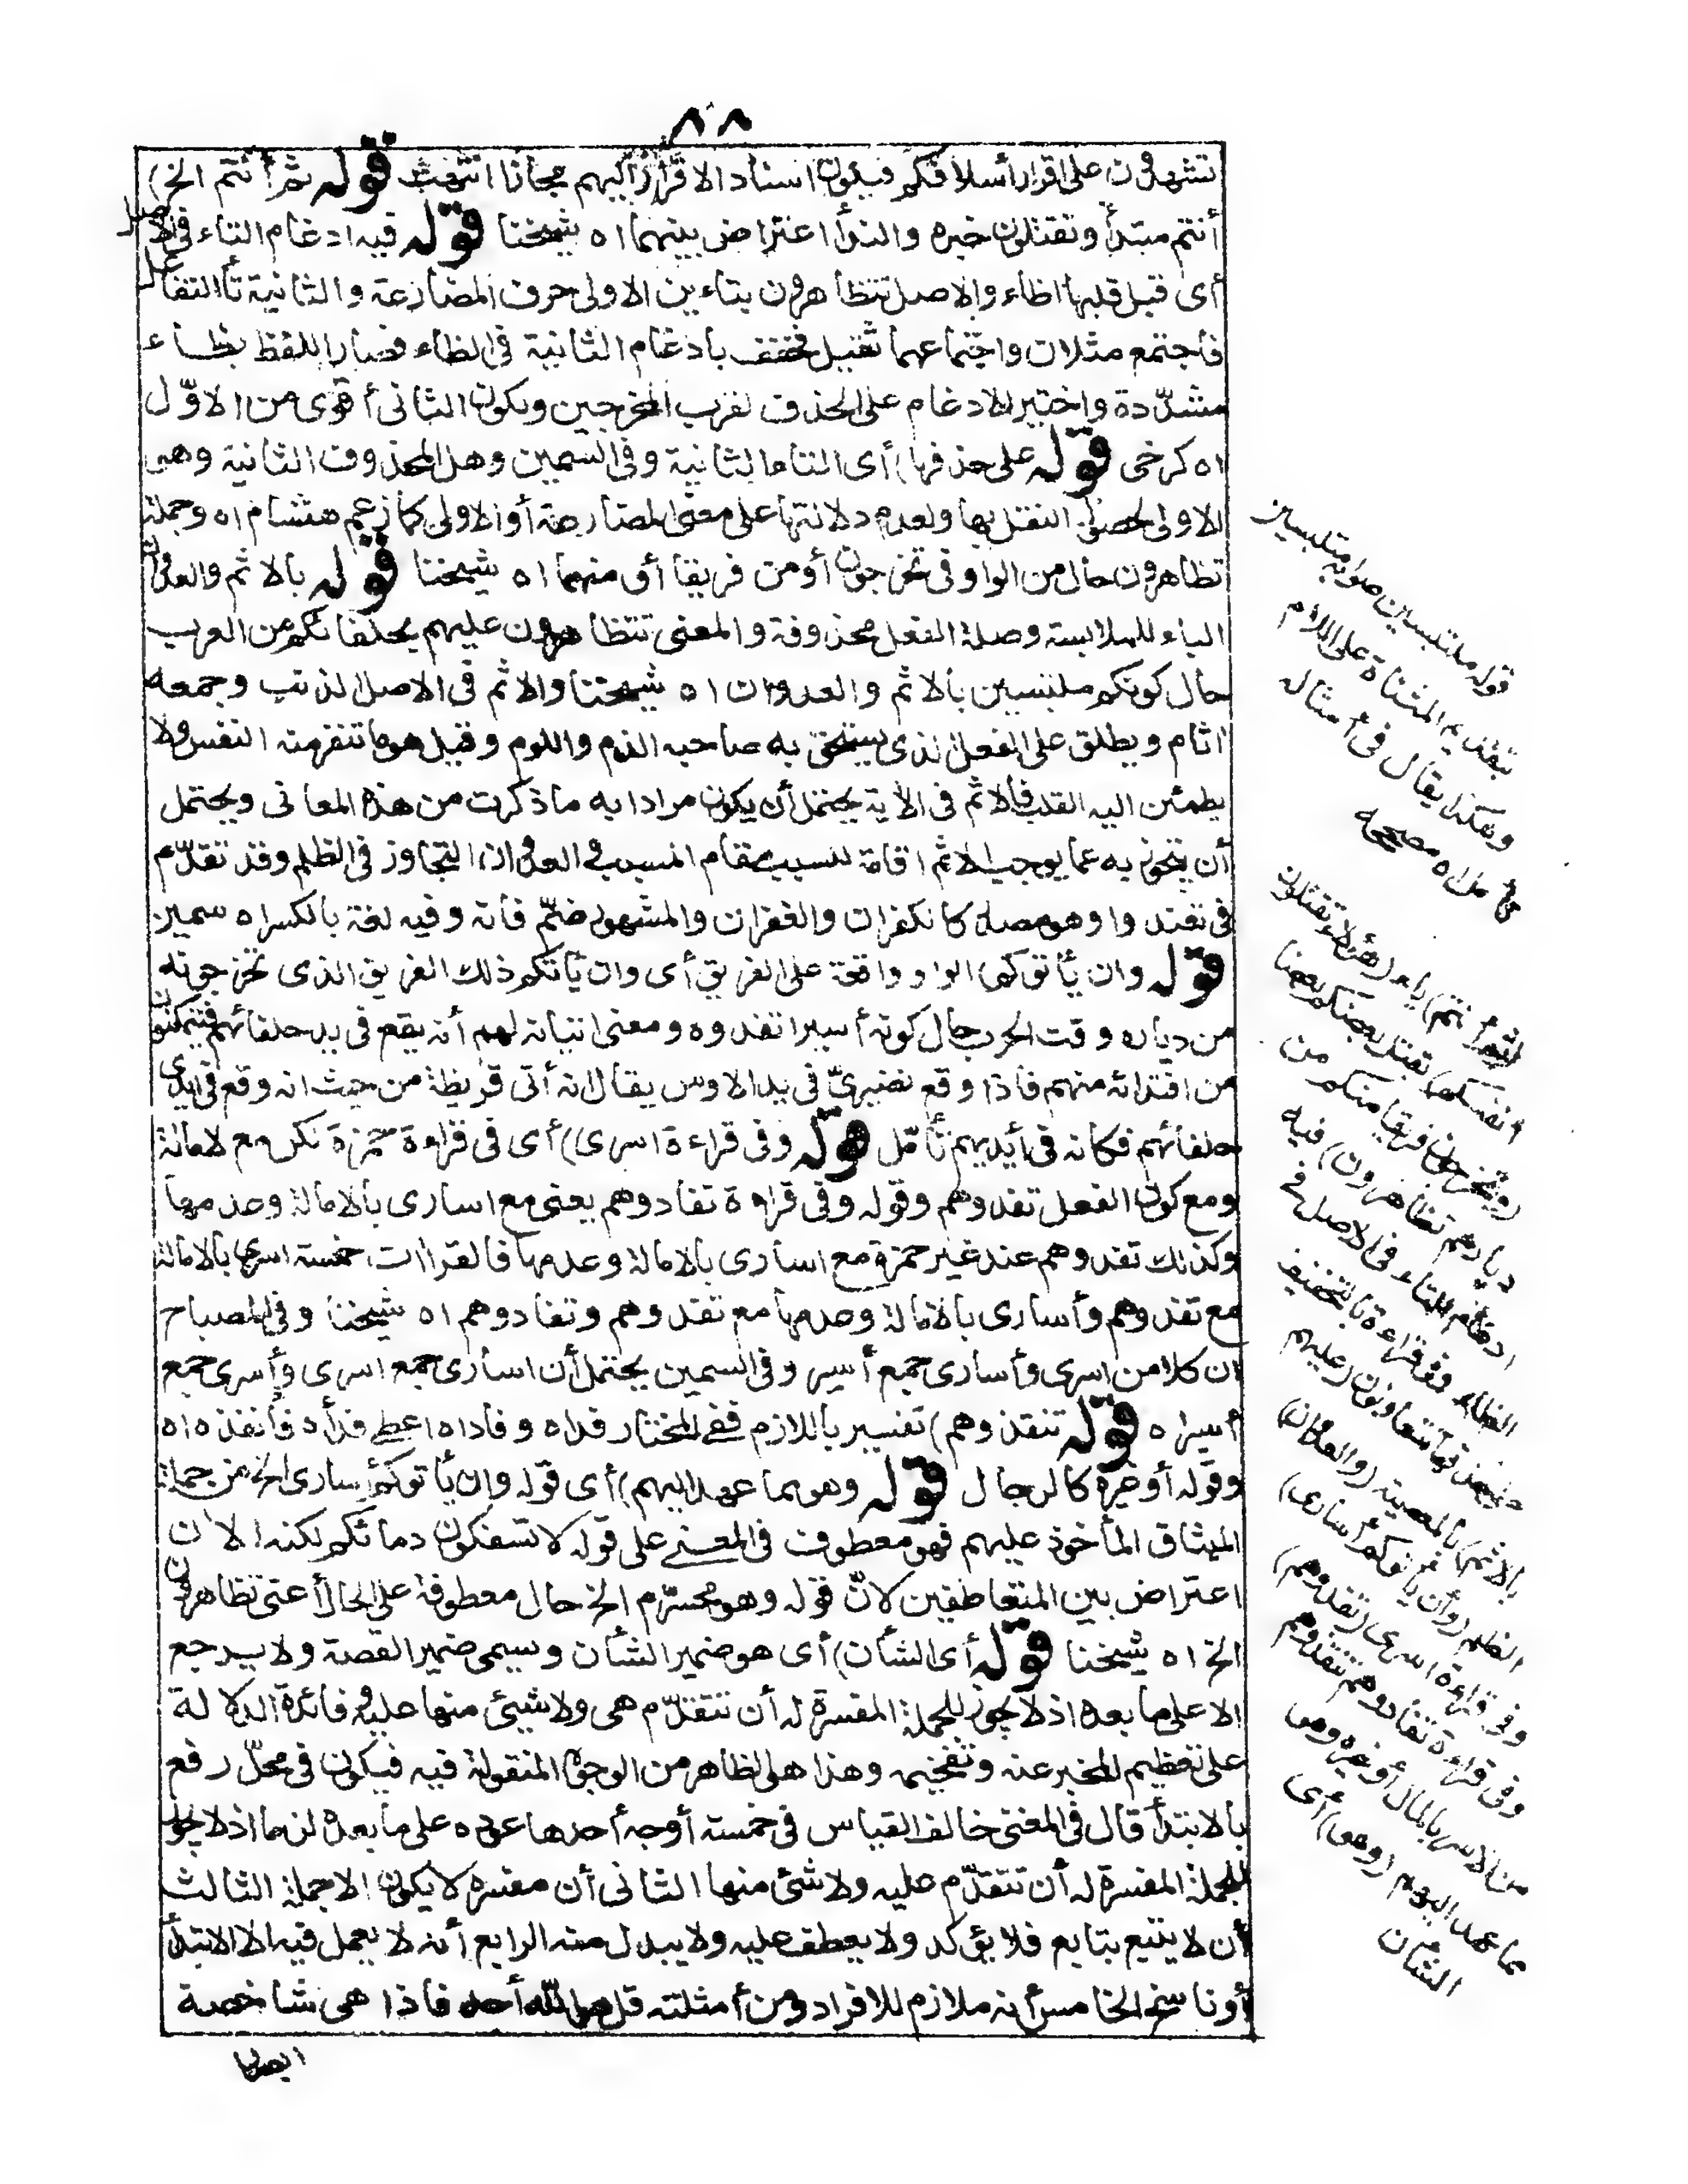 ٨٨
تشهدون على اقرار أسلافكم فيكون اسناد الاقرار اليهم مجازا انتهت قوله ثم أنتم الخ)
أنتم مبتدأ وتقتلون خبره والندا اعتراض بينهما اه شيخنا قوله فيه ادغام التاء فى الاصل
أى قبل قلبها ظاء والاصل تتظاهرون بتاءين الاولى حرف المضارعة والثانية تأ التفاعل
فاجتمع مثلان واجتماعهما ثقيل فخفف بادغام الثانية فى الظاء فصار اللفظ بظاء
مشدّدة واختير الادغام على الحذف لقرب المخرجين وبكون الثانى أقوى من الاوّل
اه كرخى قوله على حذفها) أى التاء الثانية وفى السمين وهل المحذوف الثانية وهى
الاولى لحصول الثقل بها ولعدم دلالتها على معنى المضارعة أو الاولى كما زعم هشام اه وجملة
تظاهرون حال من الواو فى تخرجون أو من فريقا أو منهما اه شيخنا قوله بالاثم والعدوان
الباء للملابسة وصلة الفعل محذوفة والمعنى تتظاهرون عليهم بحلفائكم من العرب
حال كونكم ملتبسين بالاثم والعدوان اه شيخنا والاثم فى الاصل الذنب وجمعه
اثام ويطلق على الفعل الذى يستحق به صاحبه الذم واللوم وقيل هو ما تنفر منه النفس ولا
يطمئن اليه القلب فالاثم فى الاية يحتمل أن يكون مرادا به ما ذكرت من هذه المعانى ويحتمل
أن يتجوز به عما يوجب الاثم اقامة للسبب مقام المسبب والعدوان التجاوز فى الظلم وقد تقدّم
فى تعتدوا وهو مصدر كالكفران والغفران والمشهور ضمّ فائه وفيه لغة بالكسر اه سمين
قوله وان يأتوكم) الواو واقعة على الفريق أى وان يأتكم ذلك الفريق الذى تخرجونه
من دياره وقت الحرب حال كونه أسيرا تفدوه ومعنى اتيانه لهم أنه يقع فى يد حلفائهم فيتمكنون
من افتدائه منهم فاذا وقع نضيرىّ فى يد الاوس يقال انه أتى قريظة من حيث انه وقع فى ايدى
حلفائهم فكانه فى أيديهم تأمّل قوله وفى قراءة اسرى) أى فى قراءة حمزة لكن مع الامالة
ومع كون الفعل تفدوهم وقوله وفى قراءة تفادوهم يعنى مع اسارى بالامالة وعدمها
وكذلك تفدوهم عند غير حمزة مع اسارى بالامالة وعدمها فالقراات خمسة اسرى بالامالة
مع تفدوهم وأسارى بالامالة وعدمها مع تفدوهم وتفادوهم اه شيخنا وفى المصباح
ان كلا من اسرى وأسارى جمع أسير وفى السمين يحتمل أن اسارى جمع اسرى وأسرى جمع
أسير اه قوله تنقذوهم) تفسير باللازم ففى المختار فداه وفاداه اعطى فداه فأنقذه اه
وقوله أو غيره كالرجال قوله وهو مما عهد اليهم) أى قوله وان يأتوكم أسارى الخ من جملة
الميثاق المأخوذ عليهم فهو معطوف فى المعنى على قوله لا تسفكون دمائكم لكنه الان
اعتراض بين المتعاطفين لانّ قوله وهو محرّم الخ حال معطوفة على الحال أعنى تظاهرون
الخ اه شيخنا قوله أى الشأن) أى هو ضمير الشأن ويسمى ضمير القصة ولا يرجع
الا على ما بعده اذ لا يجوز للجملة المفسرة له أن تتقدّم هى ولا شيئ منها عليه وفائدة الدلالة
على تعظيم المخبر عنه وتفخيمه وهذا هو الظاهر من الوجوه المنقولة فيه فيكون فى محلّ رفع
بالابتدأ قال فى المغنى خالف القياس فى خمسة أوجه أحدها عوده على ما بعده لزوما اذ لا يجوز
للجملة المفسرة له أن تتقدّم عليه ولا شئ منها الثانى أن مفسره لا يكون الا جملة الثالث
أن لا يتبع بتابع فلا يؤكد ولا يعطف عليه ولا يبدل منه الرابع أنه لا يعمل فيه الا الابتدأ
أو ناسخ الخامس أنه ملازم للافراد ومن أمثلته قل هو الله أحد فاذا هى شاخصة
ابصار
قوله ملتبسين صوابه متلبسين
بتقديم المثناة على اللام
وهكذا يقال فى أمثاله
اه مصححه
(ثم أنتم) يا (هؤلاء تقتلون
أنفسكم) بقتل بعضكم بعضا
(وتخرجون فريقا منكم من
ديارهم تظاهرون) فيه
ادغام التاء فى الاصل فى
الظاء وفى قراءة بالتخفيف
على حذفها تتعاونون (عليهم
بالاثم) بالمعصية (والعدوان)
الظلم (وأن يأتوكم أسارى)
وفى قراءة اسرى (تفدوهم)
وفى قراءة تفادوهم تنقذوهم
من الاسر بالمال أو غيره وهو
مما عهد اليهم (وهو) أى
الشأن